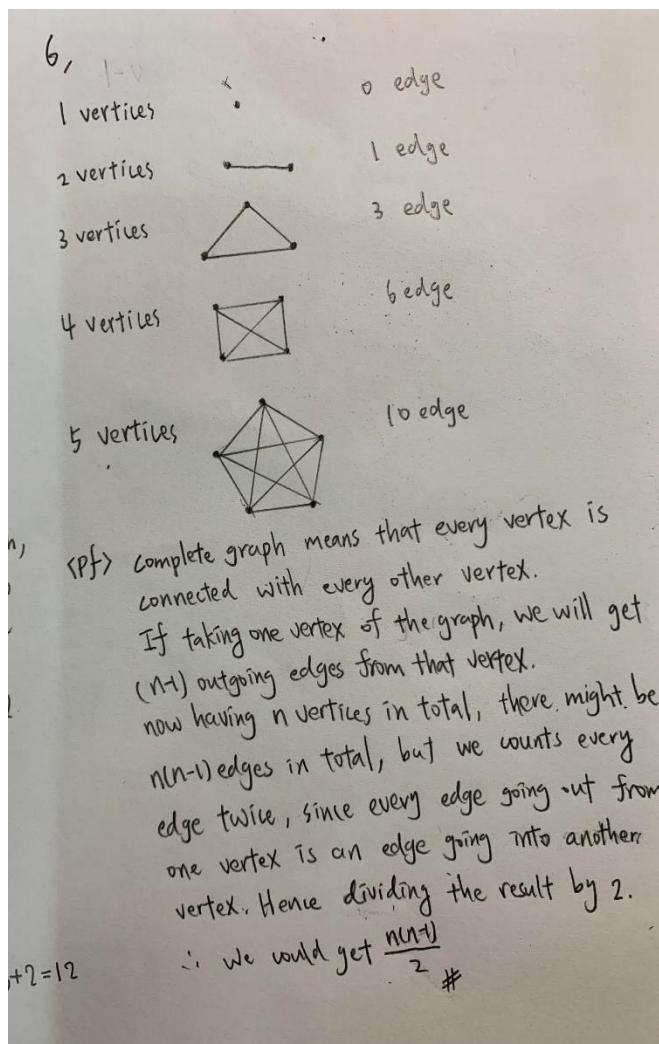 6,
1-v
1 vertices 0 edge
2 vertices 1 edge
3 vertices 3 edge
4 vertices 6 edge
5 vertices 10 edge
n,
<pf> complete graph means that every vertex is
connected with every other vertex.
If taking one vertex of the graph, we will get
(n-1) outgoing edges from that vertex.
now having n vertices in total, there might be
n(n-1) edges in total, but we counts every
edge twice, since every edge going out from
one vertex is an edge going into another
vertex. Hence dividing the result by 2.
∴ we could get n(n-1)/2 #
+2=12